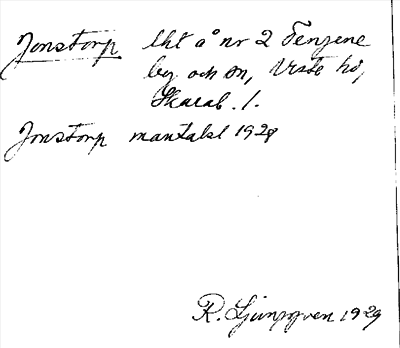 Jonstorp lht å nr 2 Tengene
by och sn, Viste hd,
Skarab. l.
Jonstorp mantalsl 1929
R. Ljunggren 1929